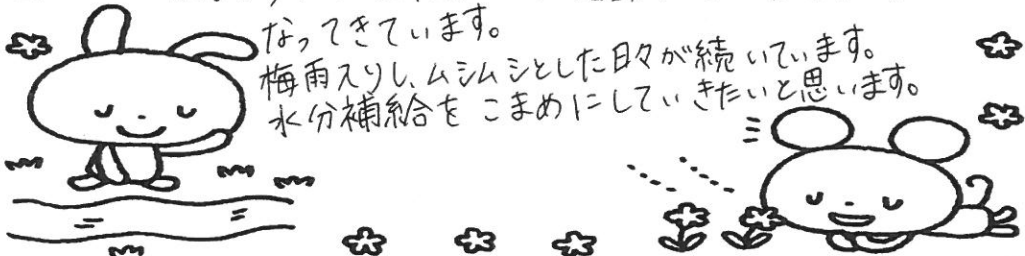 なってきています。
梅雨入りし、ムシムシとした日々が続いています。
水分補給をこまめにしていきたいと思います。